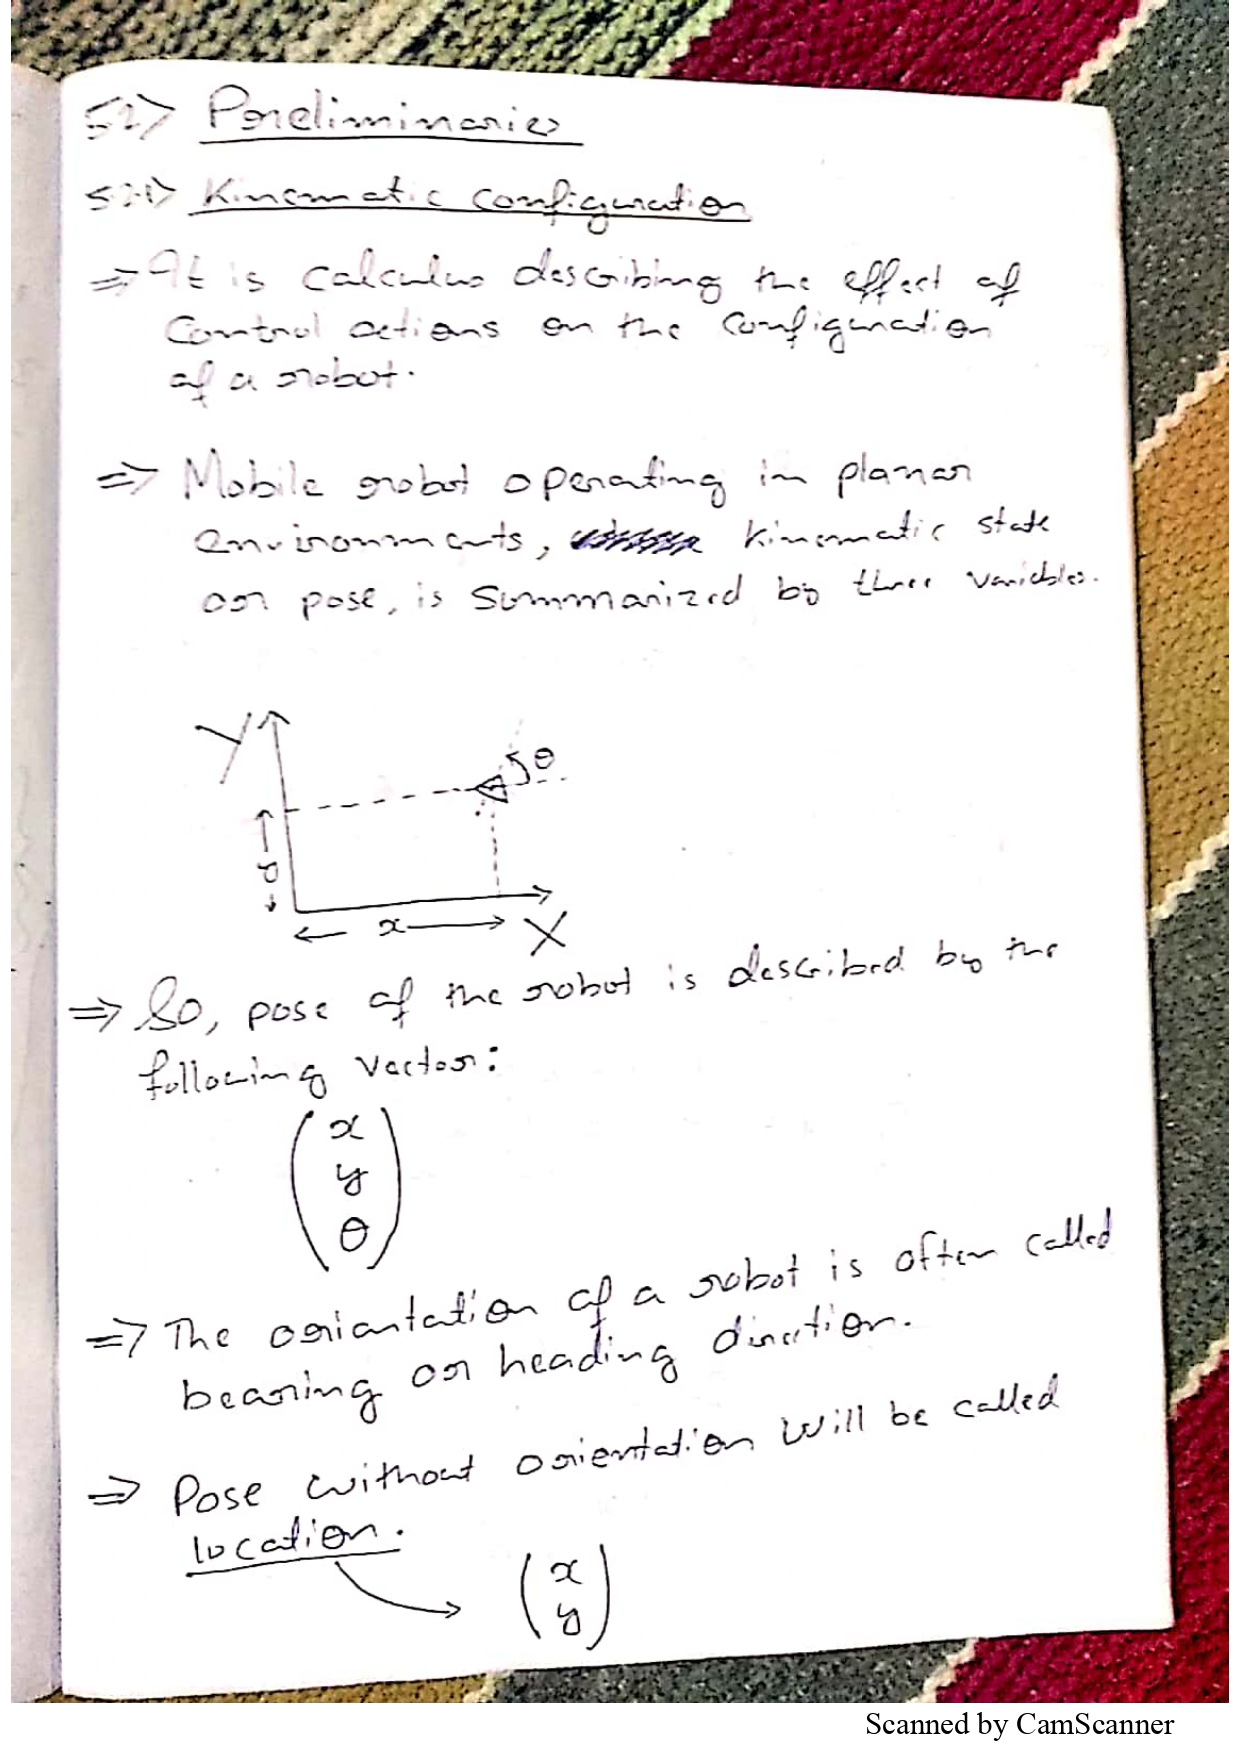 5.2> Preliminaries
5.2.1> Kinematic configuration
⇒ It is calculus describing the effect of
control actions on the configuration
of a robot.
⇒ Mobile robot operating in planar
environments, kinematic state
or pose, is summarized by three variables.
Y
θ
y
x
X
⇒ So, pose of the robot is described by the
following vector:
x
y
θ
⇒ The oriantation of a robot is often called
bearing or heading direction.
⇒ Pose without orientation will be called
location.
x
y
Scanned by CamScanner